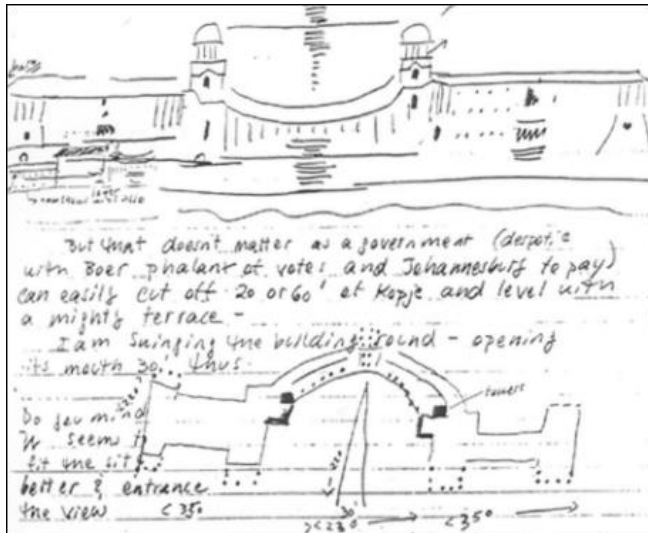 But that doesn't matter as a government (despotic
with Boer phalanx of votes and Johannesburg to pay)
can easily cut off 20 or 60' of Kopje and level with
a mighty terrace -
I am swinging the building round - opening
its mouth 30° thus.
towers
Do you mind
It seems t
fit the sit
better & entrance
the view
< 350
> < 230
< 350